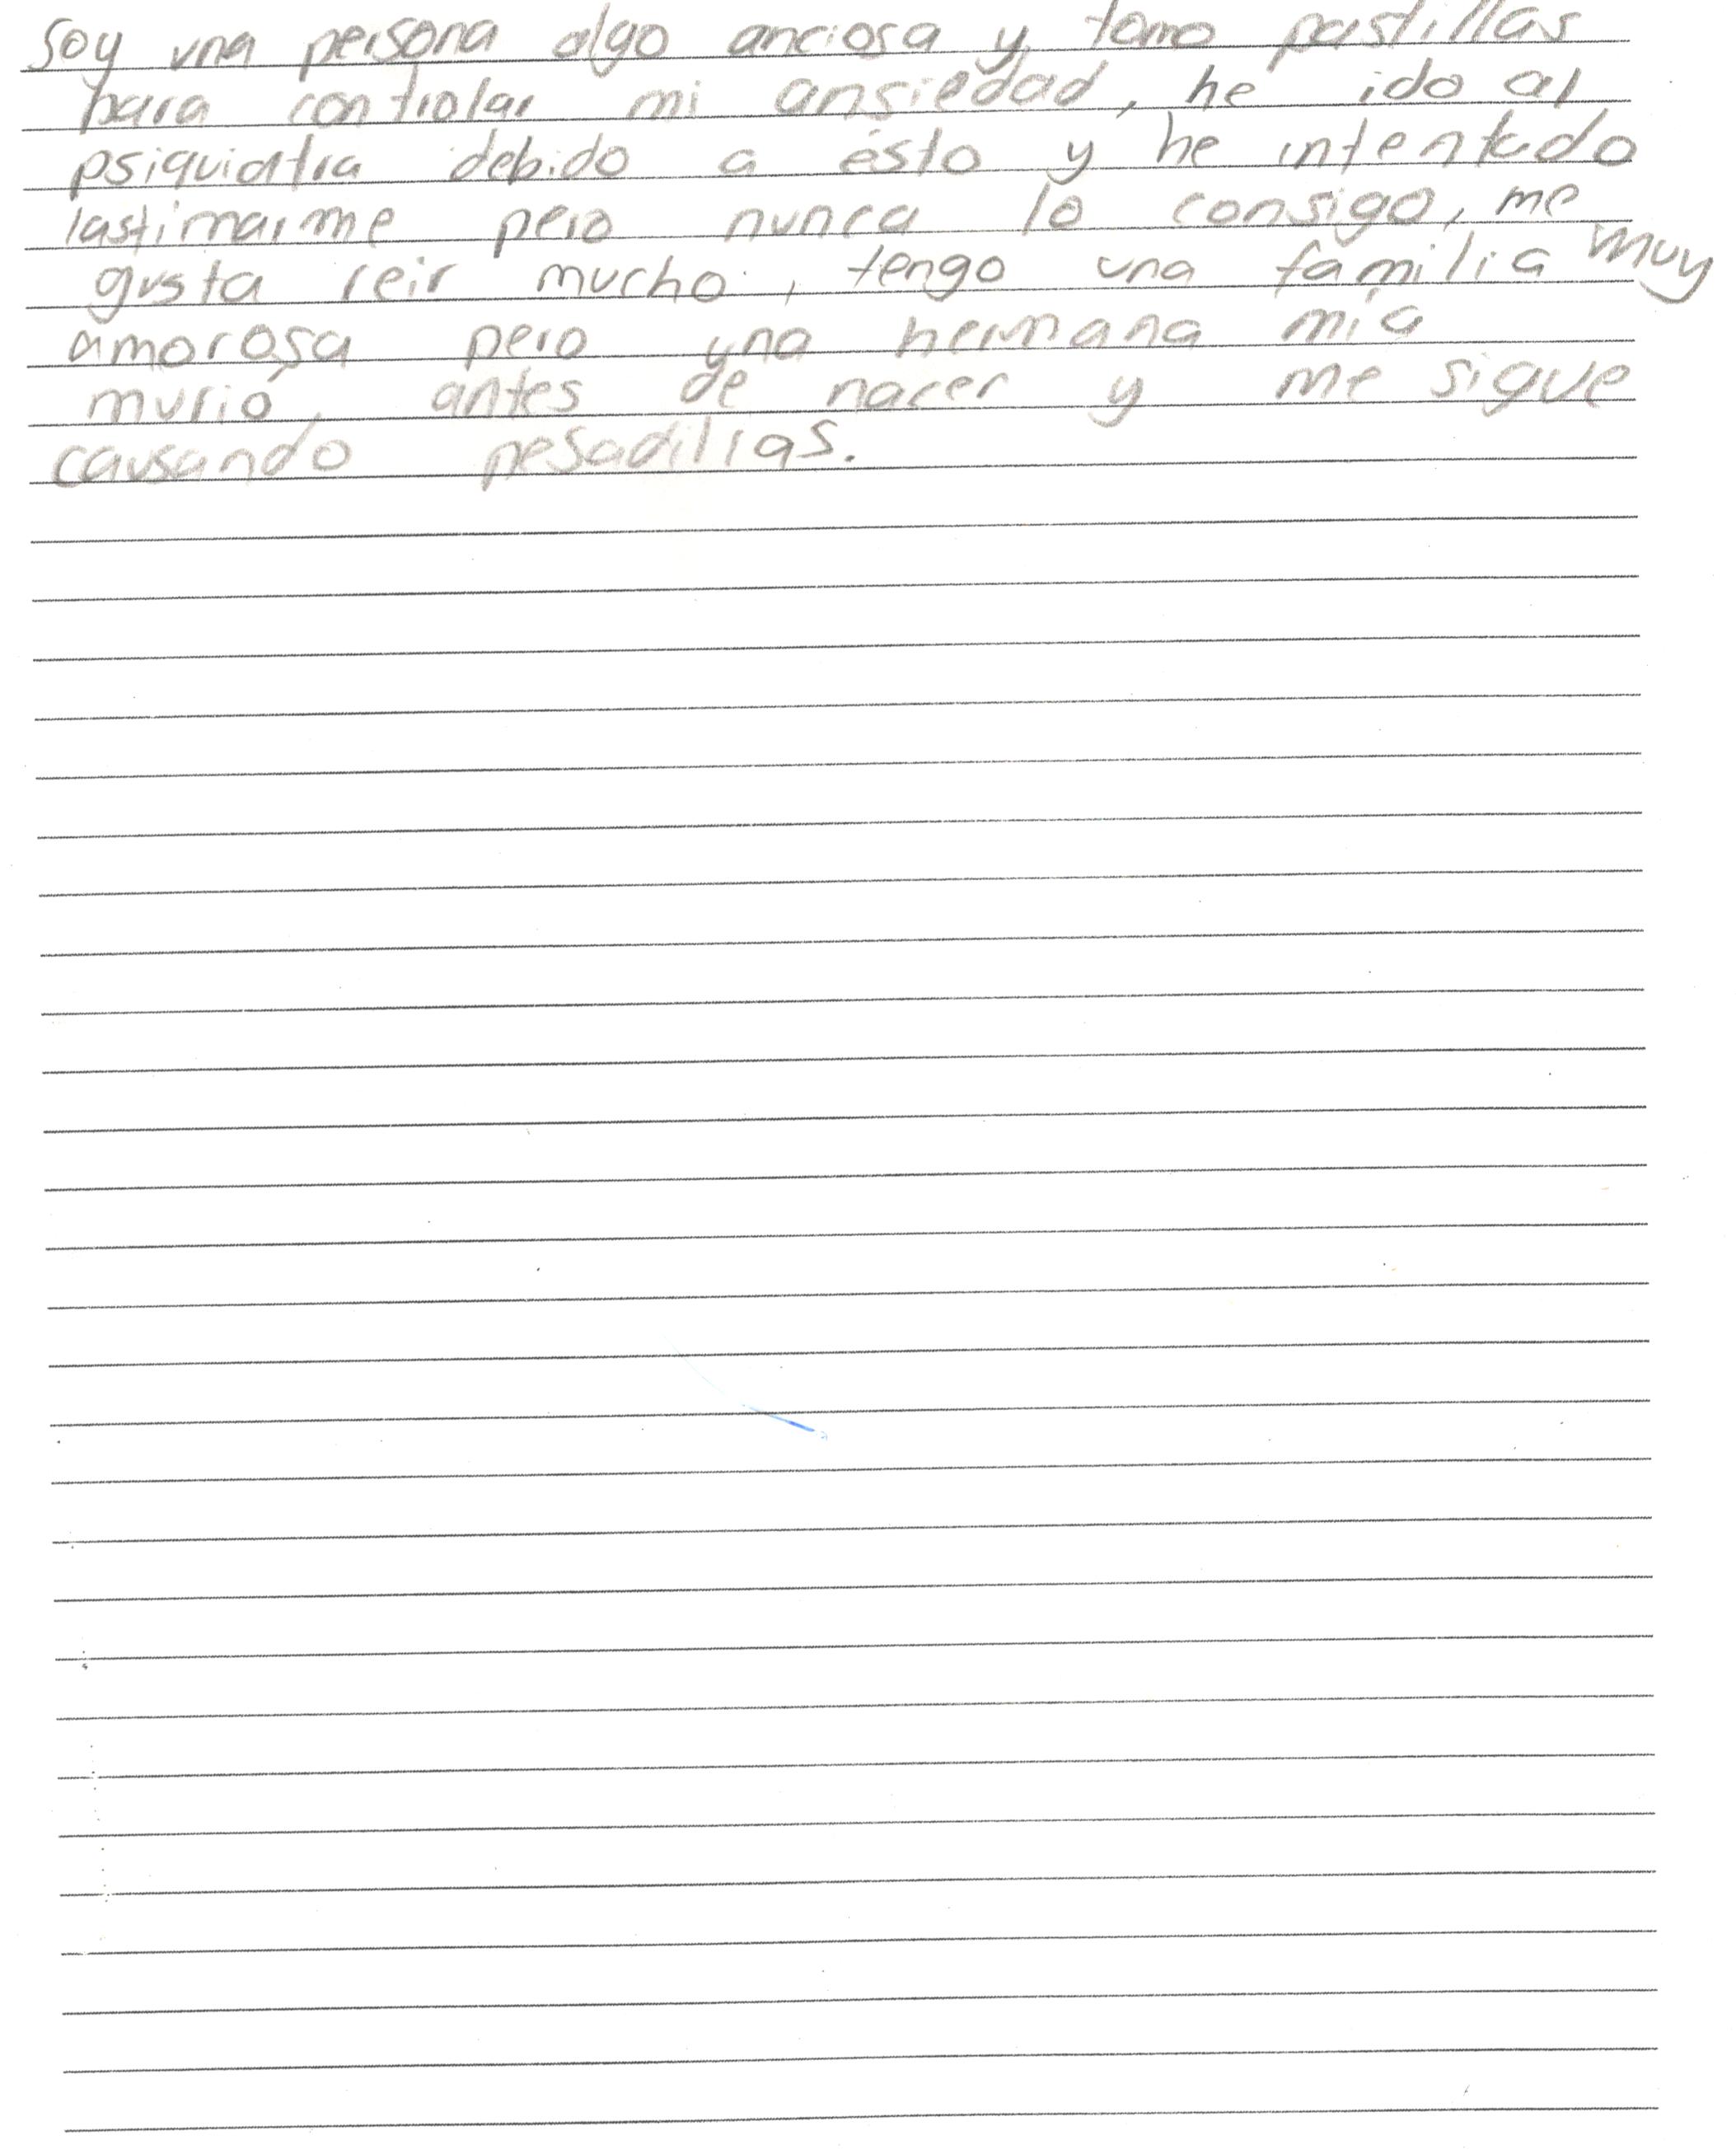 Soy una persona algo anciosa y tomo pastillas
para controlar mi ansiedad, he ido al
psiquiatra debido a ésto y he intentado
lastimarme pero nunca lo consigo, me
gusta reir mucho, tengo una familia muy
amorosa pero una hermana mía
murió, antes de nacer y me sigue
causando pesadillas.